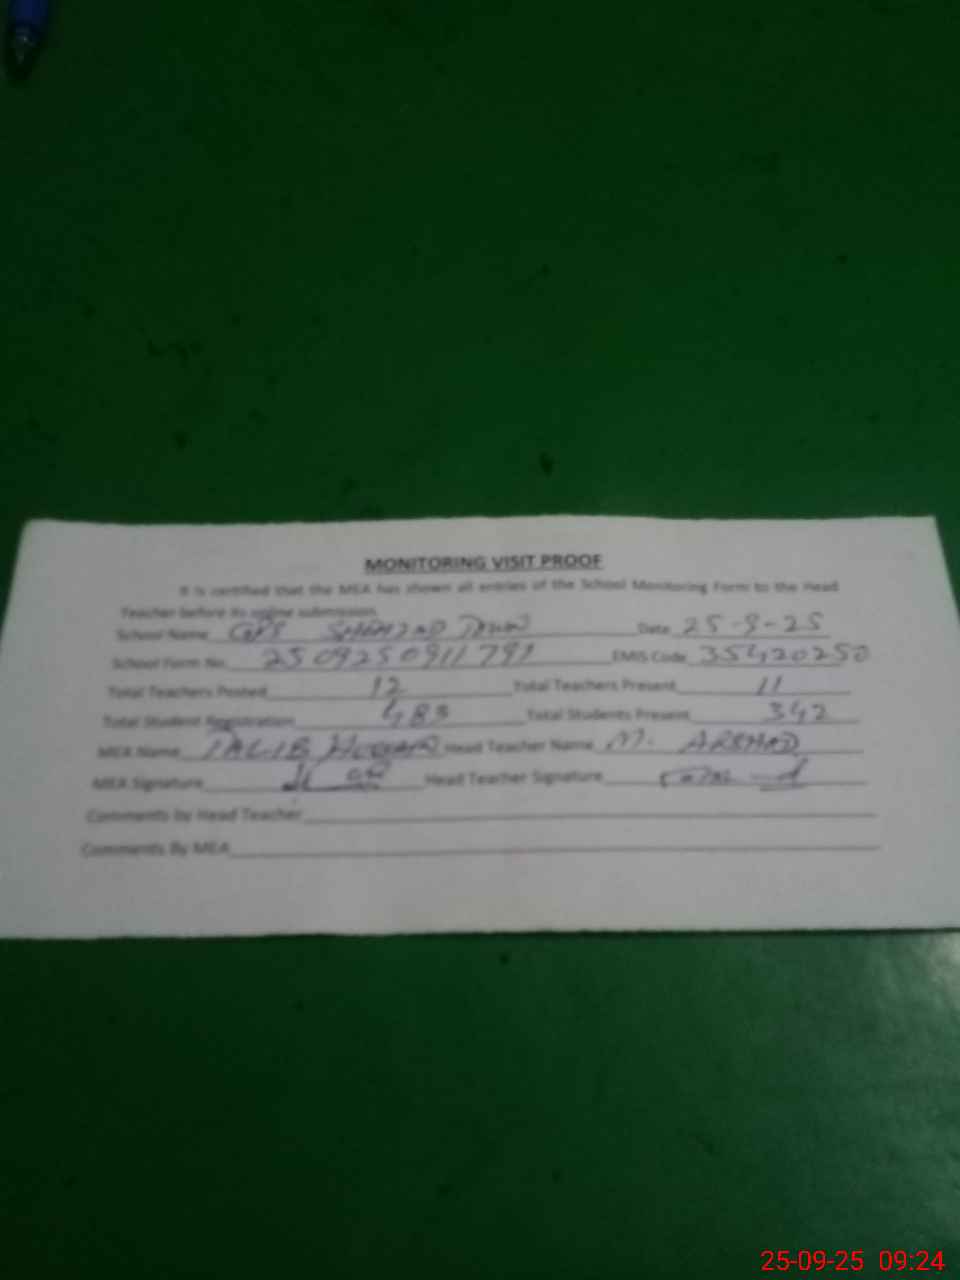 MONITORING VISIT PROOF
It is certified that the MEA has shown all entries of the School Monitoring Form to the Head
Teacher before its online submission
School Name SHAHZAD TOWN Date 25-9-25
School Form No. 2509250911791 EMIS Code 35420250
Total Teachers Posted 12 Total Teachers Present 11
Total Student Registration 483 Total Students Present 342
MEA Name TALIB HUSSAIN Head Teacher Name M. ARSHAD
MEA Signature Head Teacher Signature
Comments by Head Teacher
Comments By MEA
25-09-25 09:24